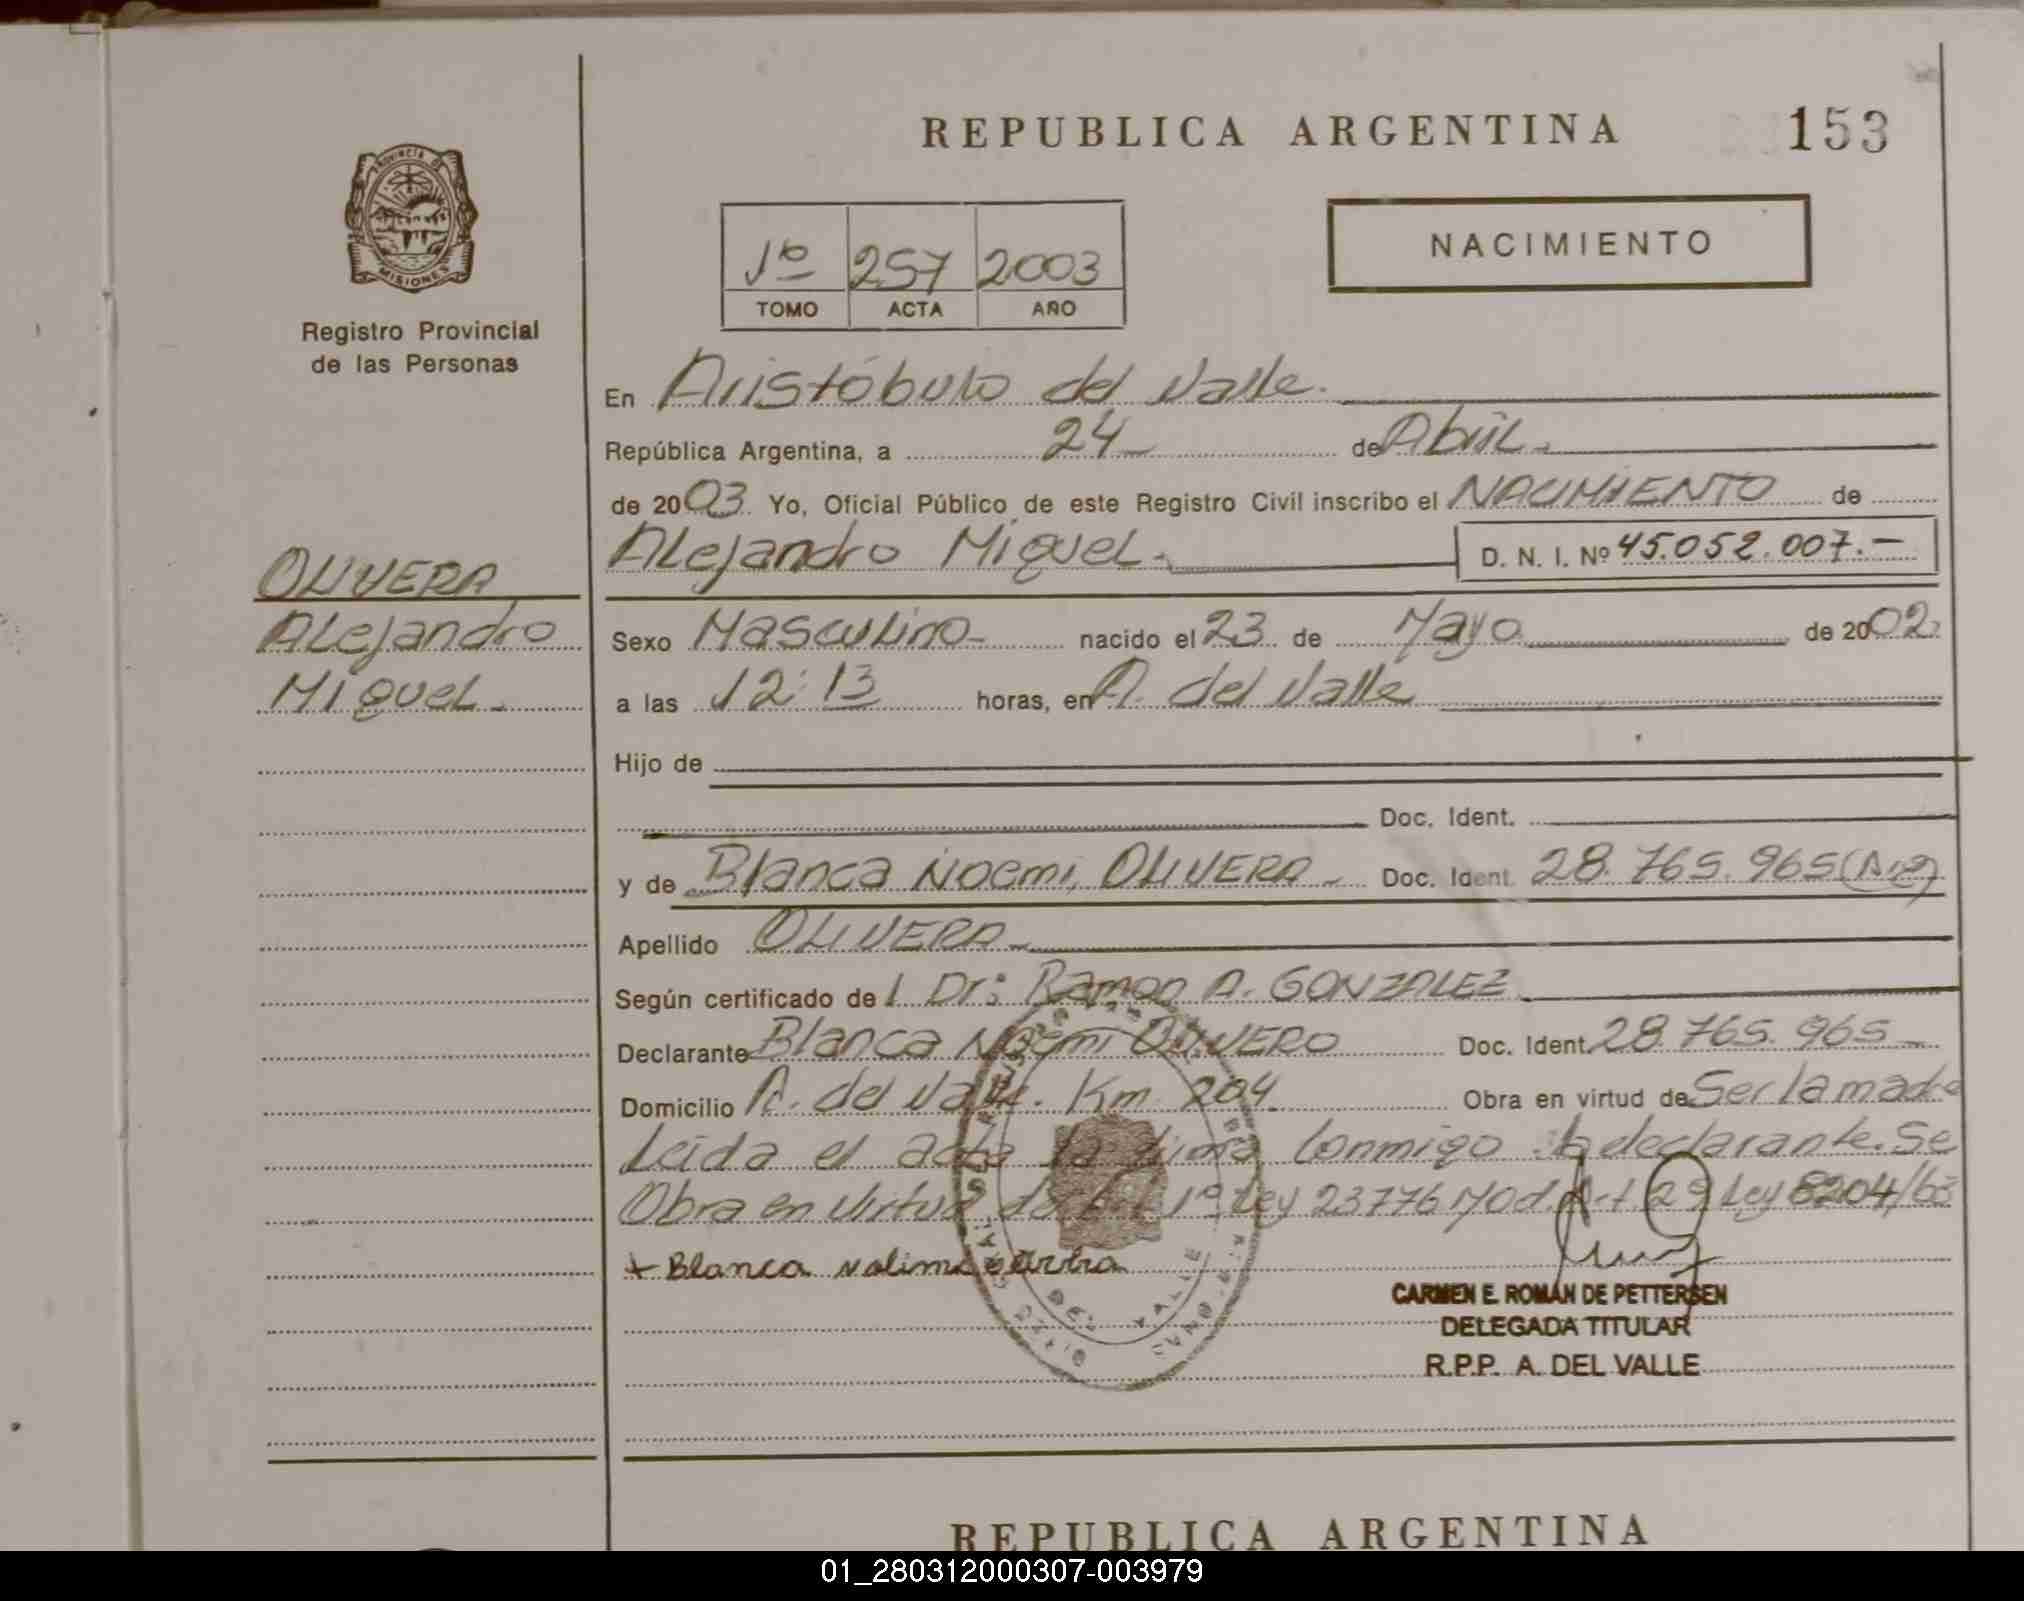 REPUBLICA ARGENTINA 153
PROVINCIA DE
MISIONES
Registro Provincial
de las Personas
1º 257 2003
TOMO ACTA AÑO
NACIMIENTO
En Aristóbulo del Valle.
República Argentina, a 24 de Abril.
de 2003. Yo, Oficial Público de este Registro Civil inscribo el NACIMIENTO de
Alejandro Miguel. D. N. I. Nº 45.052.007.-
OLIVERA
Alejandro
Miguel.
Sexo Masculino- nacido el 23 de Mayo de 2002
a las 12:13 horas, en A. del Valle
Hijo de
Doc. Ident.
y de Blanca Noemi, OLIVERA - Doc. Ident. 28.765.965 (Arg)
Apellido OLIVERA
Según certificado de l Dr: Ramon A. GONZALEZ
Declarante Blanca Noemi OLIVERO Doc. Ident. 28.765.965
Domicilio A. del Valle. Km. 204. Obra en virtud de Ser la madre
Leida el acta la firma Conmigo la declarante. Se
Obra en Virtud del Art. 1º Ley 23776 Mod. Art. 29 Ley 8204/63
+ Blanca
DEL VALLE
CARMEN E. ROMAN DE PETTERSEN
DELEGADA TITULAR
R.P.P. A. DEL VALLE
REPUBLICA ARGENTINA
01_280312000307-003979